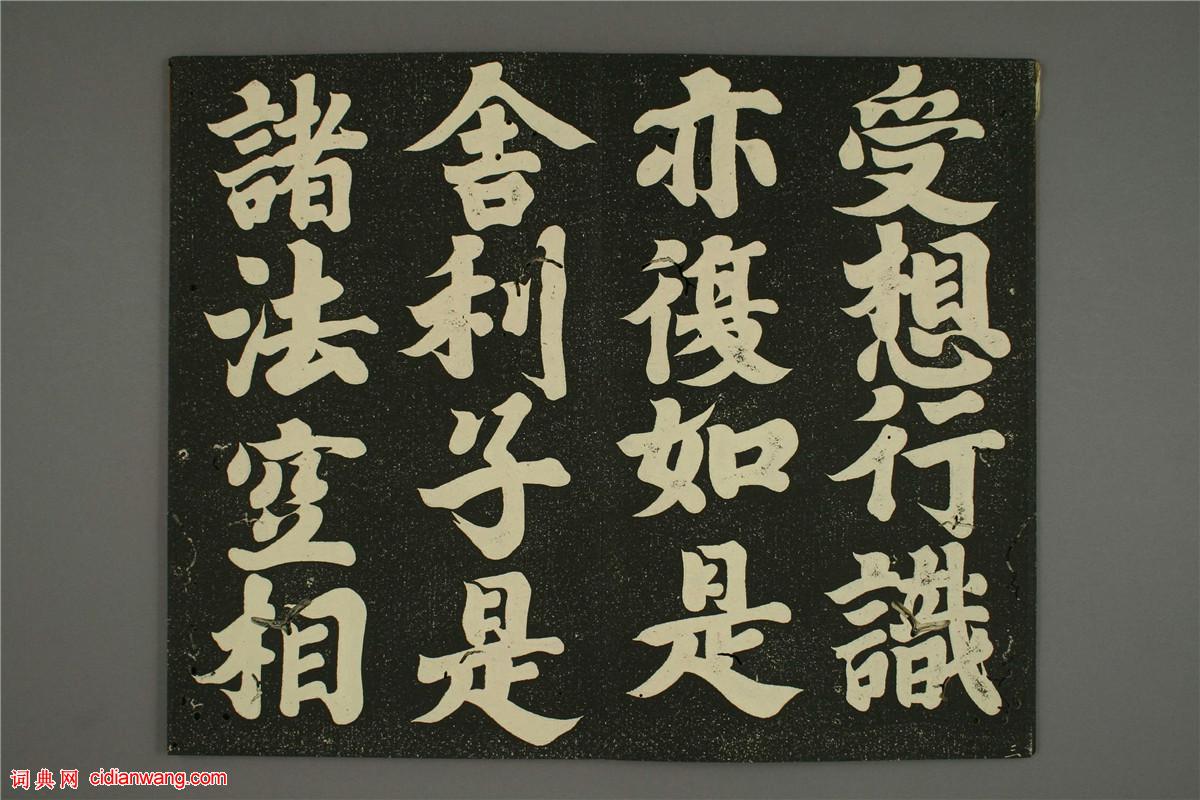 受想行識
亦復如是
舍利子是
諸法空相
词典网 cidianwang.com